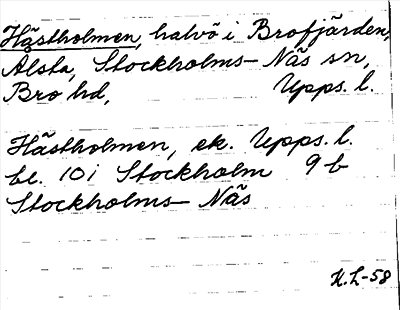 Hästholmen, halvö i Brofjärden,
Alsta, Stockholms-Näs sn,
Bro hd, Upps. l.
Hästholmen, ek. Upps. l.
bl. 10 i Stockholm 9 b
Stockholms-Näs
H.L-58